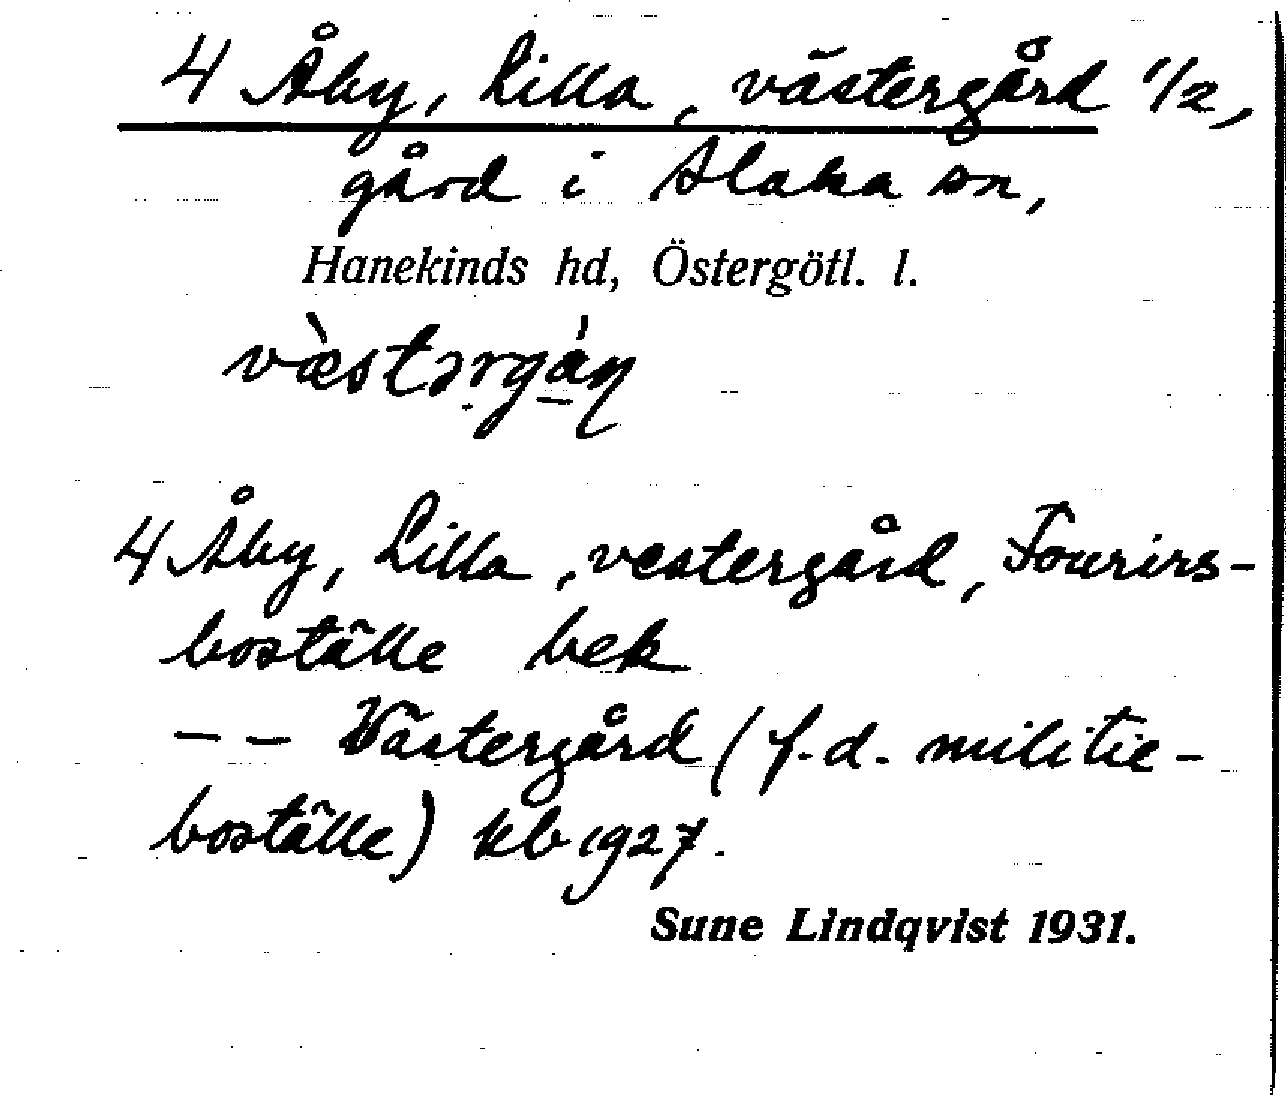 4 Åby, Lilla, västergård 1/2,
gård i Slaka sn,
Hanekinds hd, Östergötl. l.
4 Åby, Lilla, vestergård, Fourirs-
boställe bek
-- Västergård (f.d. militie-
boställe) kb 1927.
Sune Lindqvist 1931.